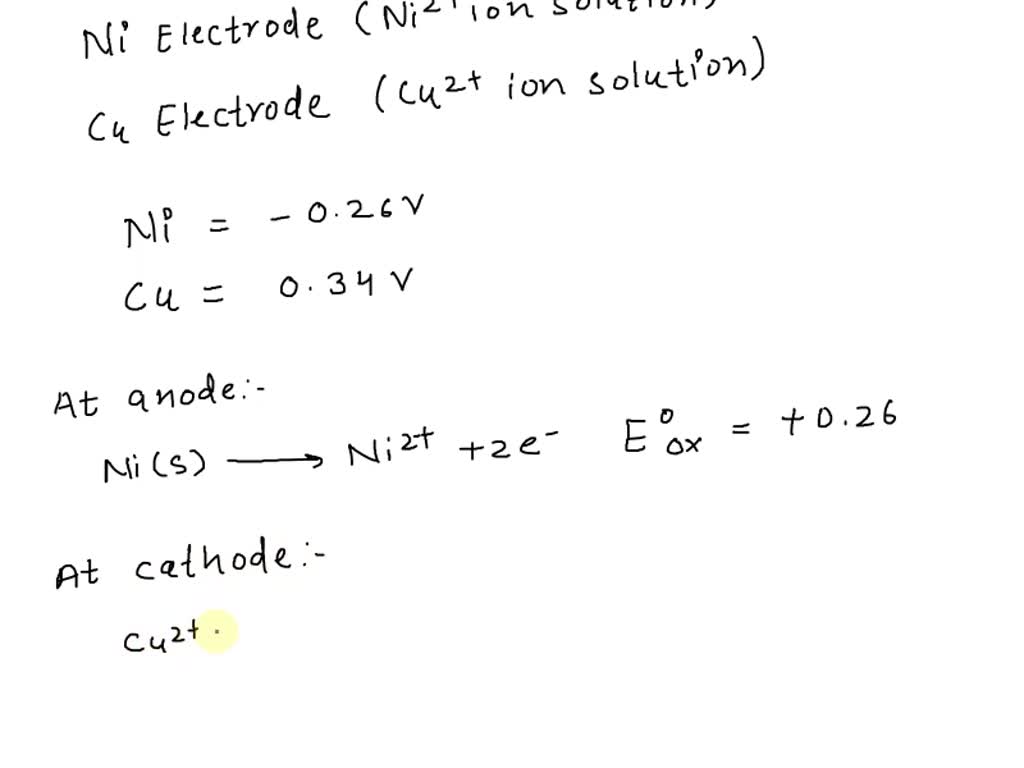 Ni Electrode (Ni²⁺ ion solution)
Cu Electrode (Cu²⁺ ion solution)
Ni = - 0.26 V
Cu = 0.34 V
At anode:-
Ni(s) ⟶ Ni²⁺ +2e⁻ E°ox = +0.26
At cathode:-
Cu²⁺